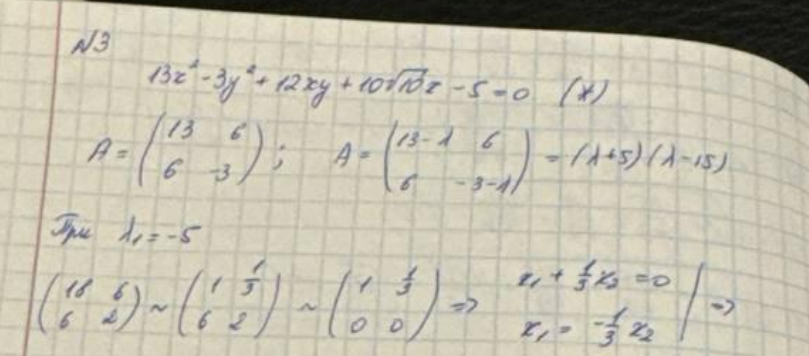 №3
13x² - 3y² + 12xy + 10√10x - 5 = 0 (*)
A = (13 6; 6 -3); A = (13-λ 6; 6 -3-λ) = (λ+5)(λ-15)
При λ₁ = -5
(18 6; 6 2) ~ (1 1/3; 6 2) ~ (1 1/3; 0 0) => x₁ + 1/3 x₂ = 0 x₁ = -1/3 x₂ | =>